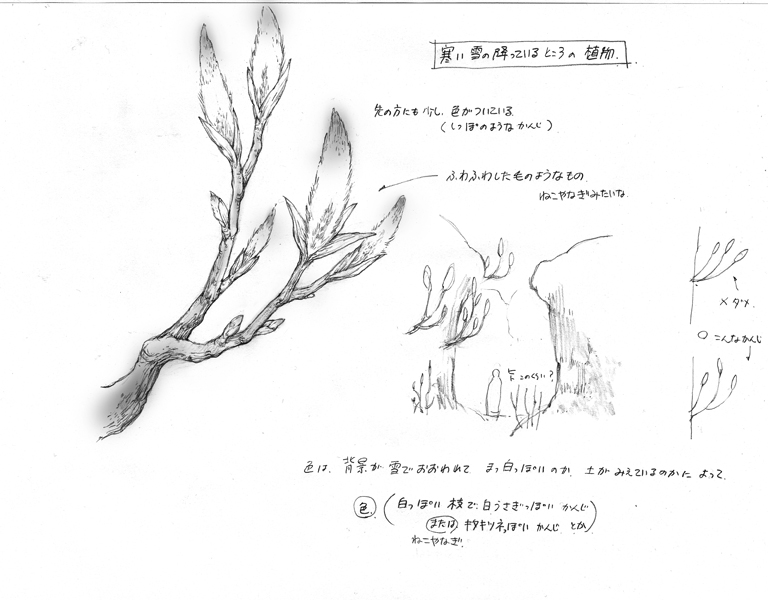 寒い雪の降っているところの植物.
先の方にも少し、色がついている.
(しっぽのようなかんじ)
ふわふわした毛のようなもの.
ねこやなぎみたいな.
×ダメ.
○こんなかんじ
このくらい?
色は、背景が雪でおおわれてまっ白っぽいのか、土がみえているのかによって.
色.(白っぽい枝で白うさぎっぽいかんじ
またはキタキツネっぽいかんじとか)
ねこやなぎ.